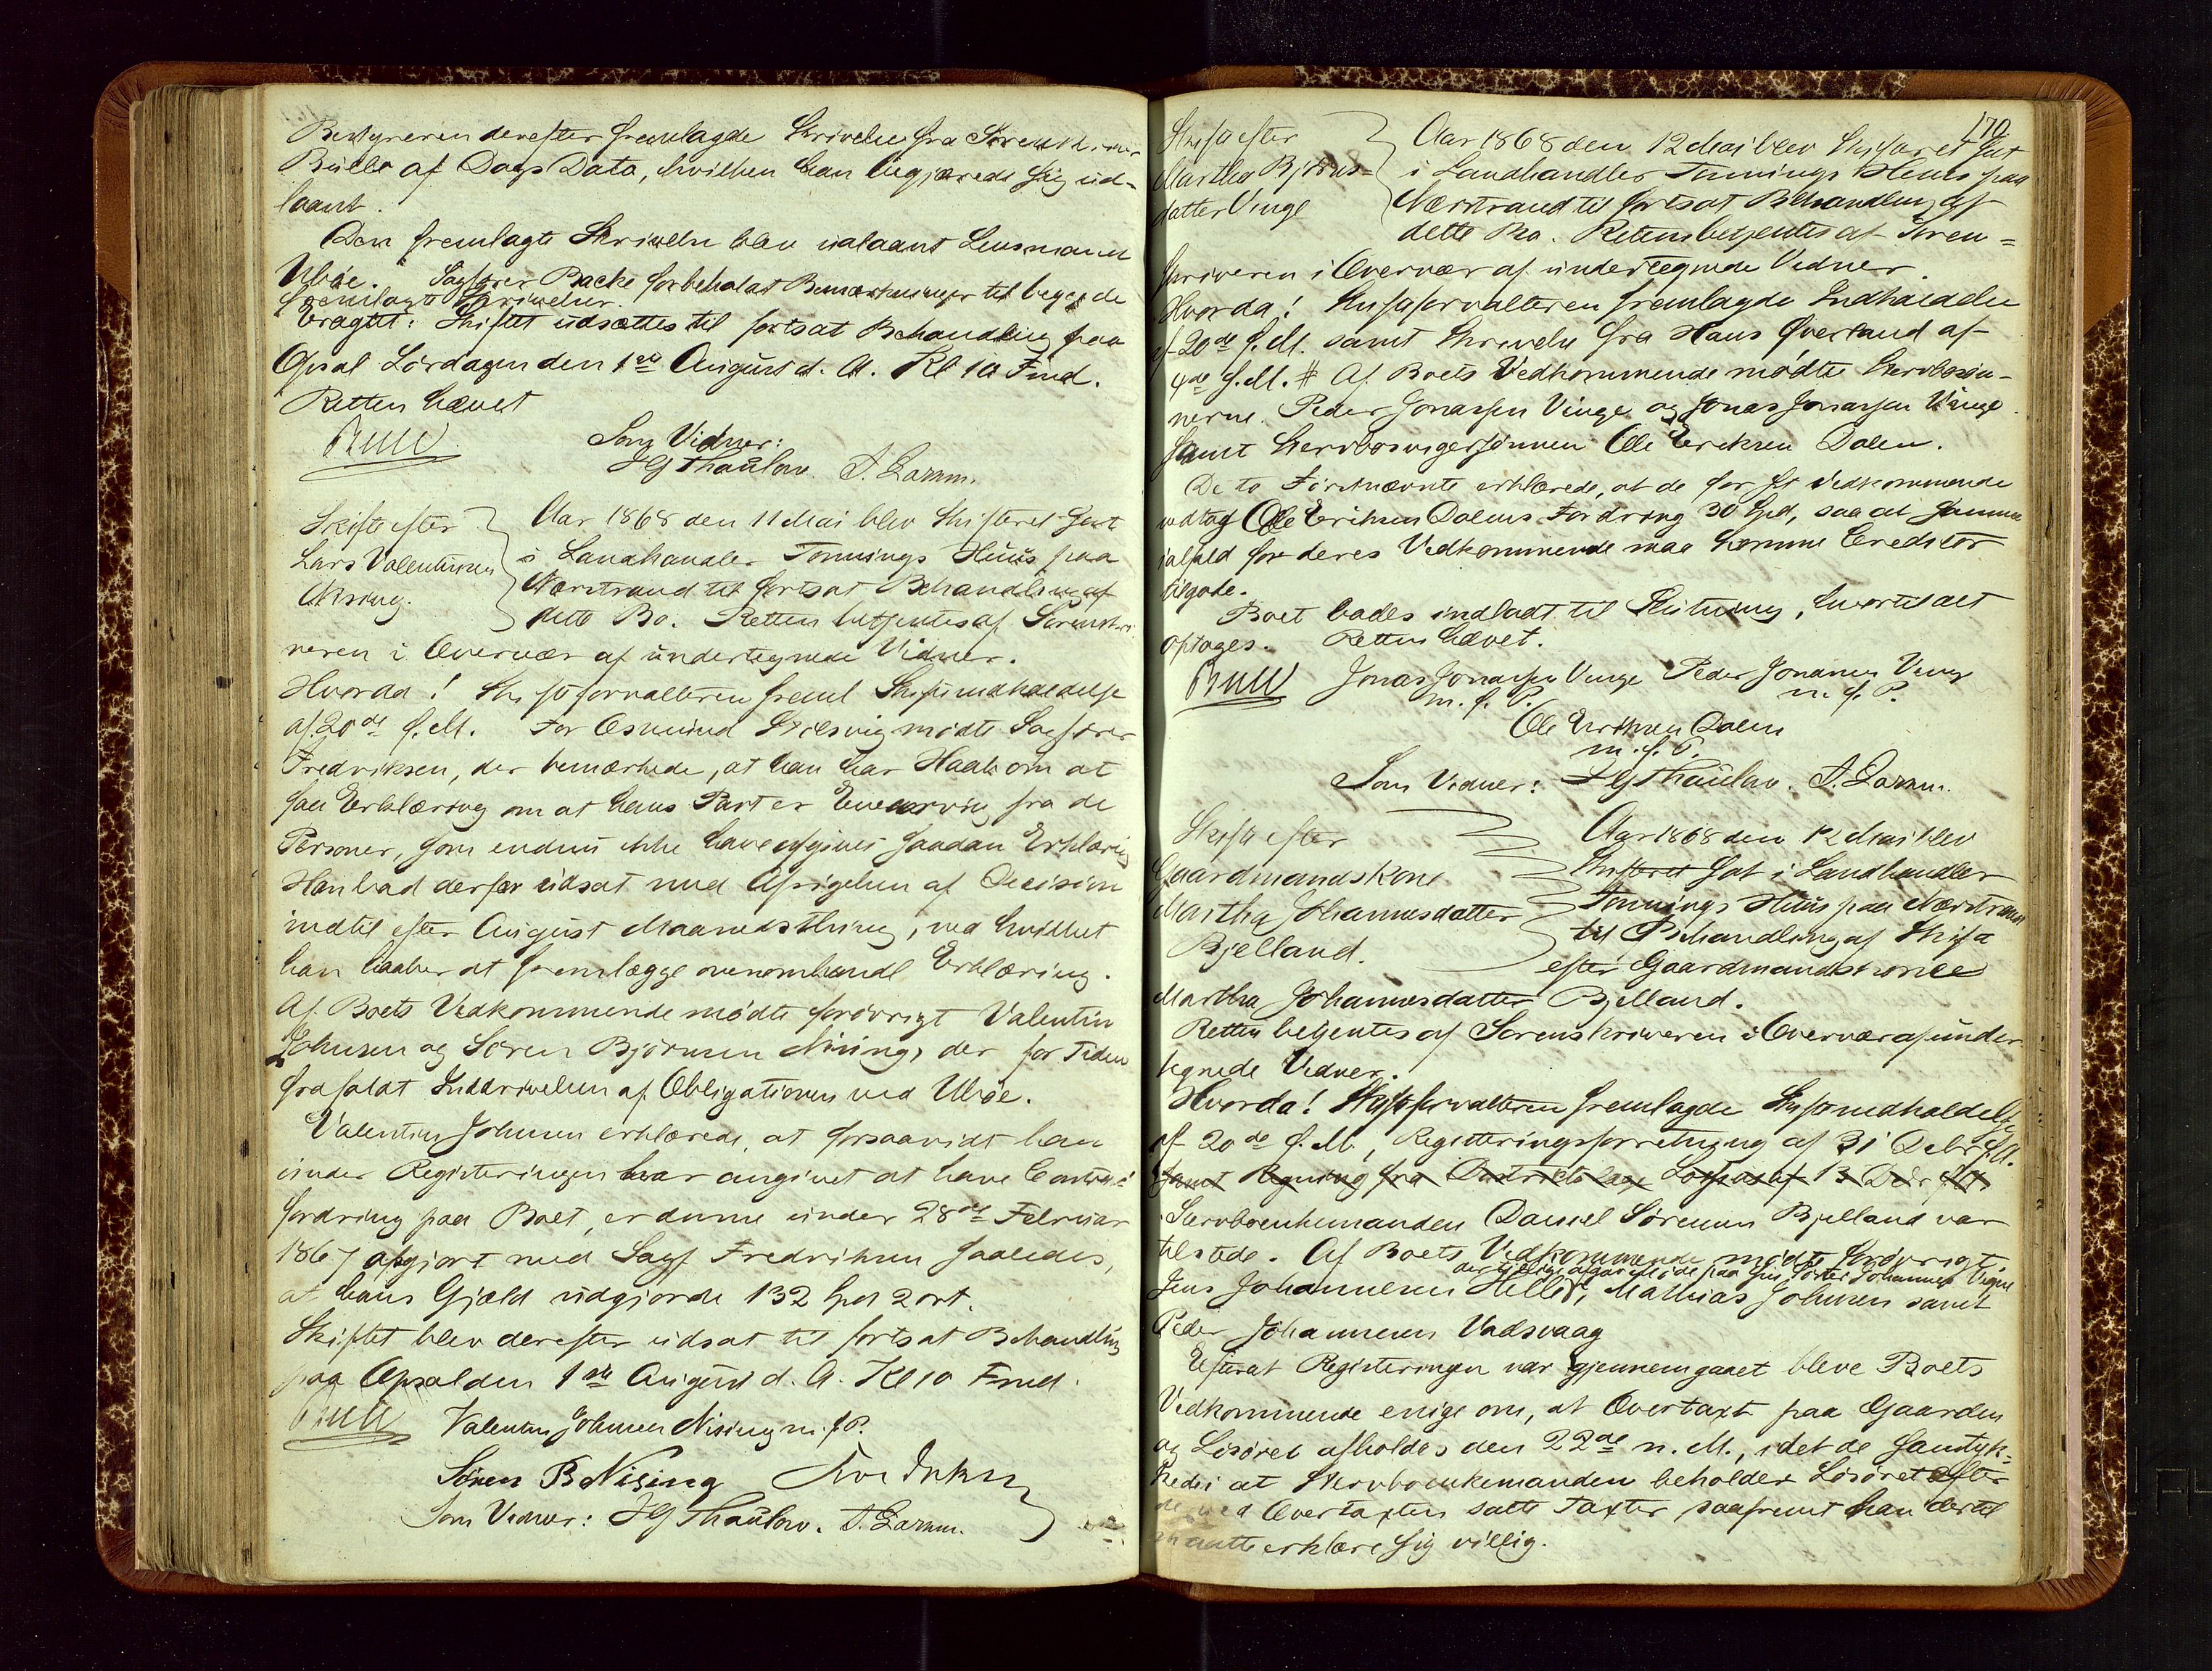 Bestyreren derefter fremlagde Skrivelse fra Sorenskriver
Bülls af Dags Dato, hvilken han begjærede sig ud-
laant.
Den fremlagte Skrivelse blev udlaant Lensmand
Ubøe. Sagfører Backe forbeholdt Bemærkninger til begge de
fremlagte Skrivelser.
Eragtet: Skiftet udsættes til fortsat Behandling paa
Opsal Lørdagen den 1ste August d. A. Kl 10 Fmd.
Retten hævet
Bull
Som Vidner:
HG Thaulow. A. Larsen.
Skifte efter
Lars Valentinsen
Nising.
Aar 1868 den 11 Mai blev Skifteret sat
i Landhandler Tonnings Huus paa
Nærstrand til fortsat Behandling af
dette Bo. Retten betjentes af Sorenskri
veren i Overvær af undertegnede Vidner.
Hvorda! Skifteforvalteren freml Skifteindkaldelse
af 20de f.M. For Osmund mødte Sagfører
Fredriksen, der bemærkede, at han har Haab om at
faa Erklæring om at hans Part er Enearving fra de
Personer, som endnu ikke have afgivet saadan Erklæring
Han bad derfor udsat med Afsigelsen af Decision
indtil efter August Maanedsthing, ved hvilket
han haaber at fremlægge ovenomhandl Erklæring.
Af Boets Vedkommende mødte forøvrigt Valentin
Johnsen og Søren Bjørnsen Nising, der for Tiden
frafaldt Inddrivelsen af Obligationen ved Ubøe.
Valentin Johnsen erklærede, at forsaavidt han
under Registeringen har angivet at have Contra-
fordring paa Boet, er denne under 28de Februar
1867 afgjort med Sagf Fredriksen saaledes,
at hans Gjæld udgjorde 132 Spd 2 ort.
Skiftet blev derefter udsat til fortsat Behandling
paa Opsal den 1ste August d. A. Kl 10 Fmd.
Bull
Valentin Johnsen Nising m. f. P.
Søren B Nising Fredriksen
Som Vidner: HG Thaulow. A. Larsen.
170
Skifte efter
Martha Bjørns-
datter Vinge
Aar 1868 den 12 Mai blev Skifteret sat
i Landhandler Tonnings Huus paa
Nærstrand til fortsat Behandling af
dette Bo. Retten betjentes af Soren=
skriveren i Overvær af undertegnede Vidner.
Hvorda! Skifteforvalteren fremlagde Indkaldelse
af 20de f.M. samt Skrivelse fra Hans Qverland af
4de f.M. # Af Boets Vedkommende mødte Stervbosøn-
nerne Peder Jonassen Vinge og Jonas Jonassen Vinge
samt Stervbosvigersønnen Ole Eriksen Dalen.
De to Førstnævnte erklærede, at de for sit Vedkommende
vedtog Ole Eriksen Dalens Fordring 30 Spd, saa at samme
ialfald for deres Vedkommende maa komme Creditor
tilgode.
Boet bades indladt til Slutning, hvortil det
optages. Retten hævet.
Bull Jonas Jonassen Vinge Peder Jonassen Vinge
m. f. P. m. f. P.
Ole Eriksen Dalen
m. f. P.
Som Vidner: HG Thaulow. A. Larsen.
Skifte efter
Gaardmandskone
Martha Johannesdatter
Bjelland.
Aar 1868 den 12 Mai blev
Skifteret sat i Landhandler
Tonnings Huus paa Nærstrand
til Behandling af Skifte
efter Gaardmandskone
Martha Johannesdatter Bjelland.
Retten betjentes af Sorenskriveren i Overvær af under
tegnede Vidner.
Hvorda! Skifteforvalteren fremlagde Skifteindkaldelse
af 20de f.M., Registeringsforretning af 31 Debr f.A.
samt Regning fra Districtslæge af 13 Debr f.A.
Stervboenkemanden Daniel Sørensen Bjelland var
tilstede. Af Boets Vedkommende mødte forøvrigt
Jens Johannesen Helle, Mathias Johnsen samt
Peder Johannesen Vadsvaag
Efterat Registeringen var gjennemgaaet bleve Boets
Vedkommende enige om, at Overtaxt paa Gaarden
og Løsøret afholdes den 22de n. M., idet de samtyk=
kede i at Stervboenkemanden beholder Løsøret efter
de ved Overtaxten satte Taxter, saafremt han dertil
maatte erklære sig villig.